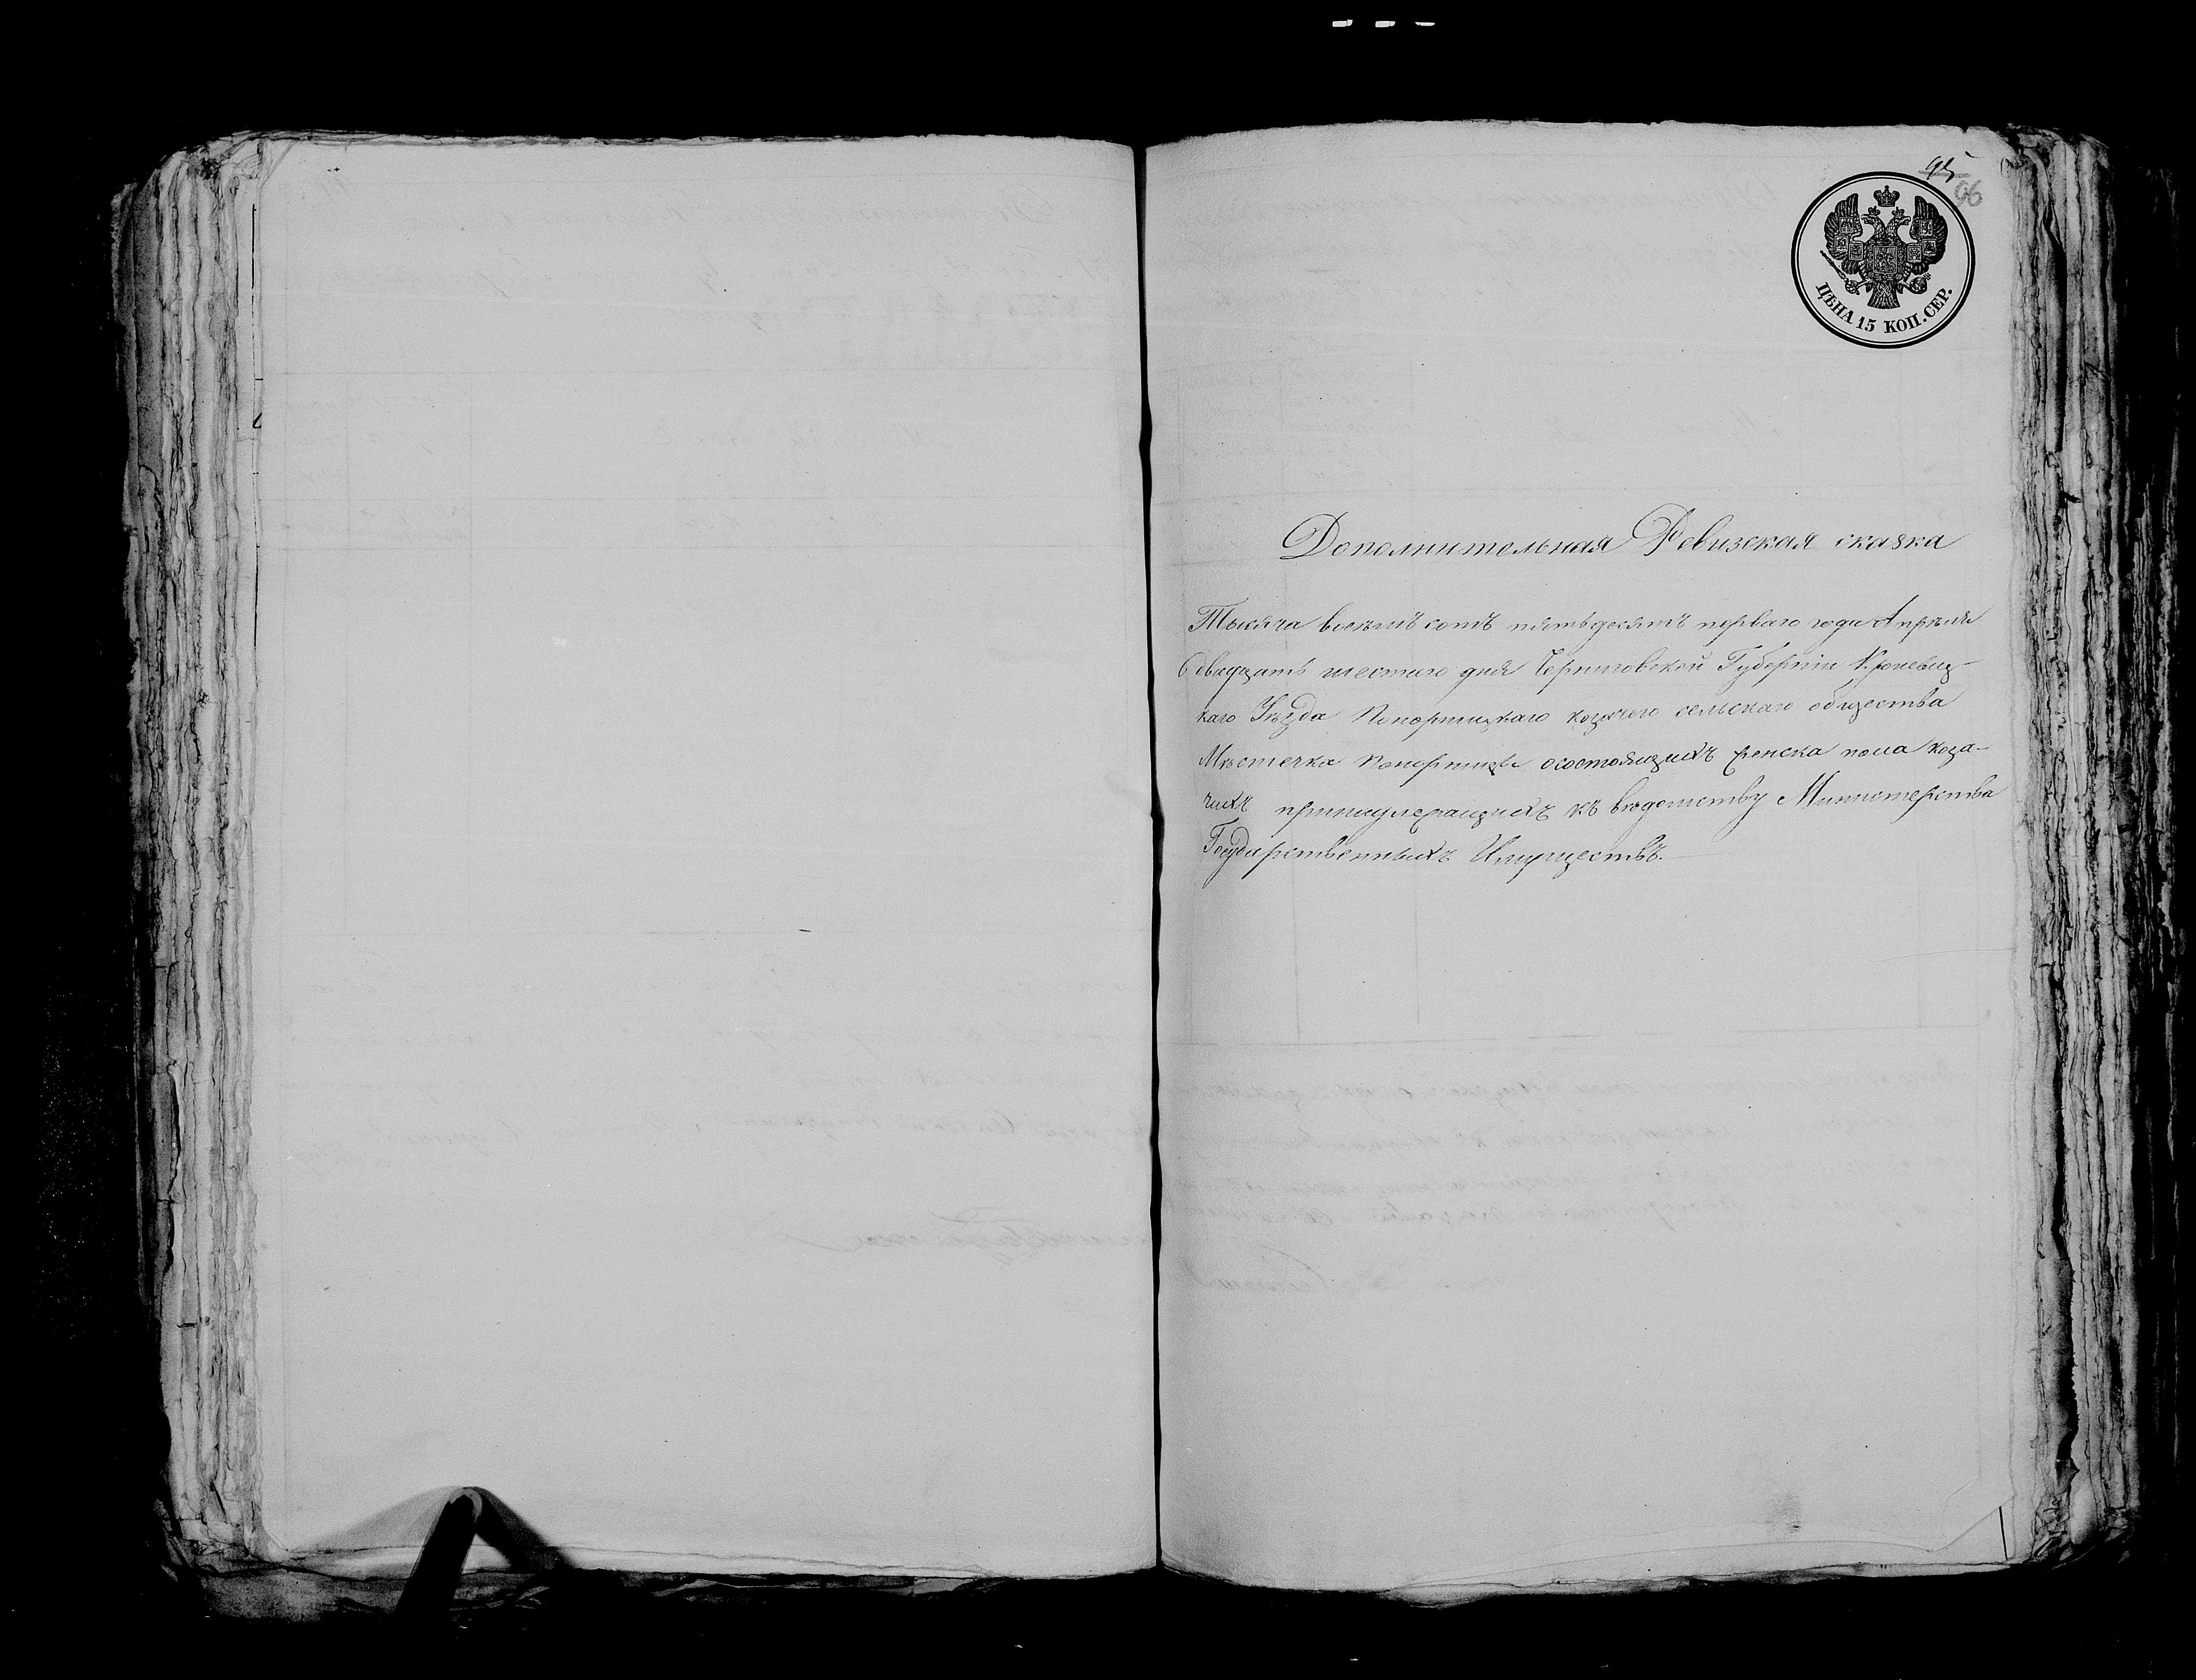 95
96
ЦѢНА 15 КОП. СЕР.
Дополнительная Ревизская сказка
Тысяча восемь сотъ пятьдесятъ перваго года Апрѣля
двадцать шестаго дня Черниговской Губерніи Кролевец-
каго Уѣзда Понорницкаго козачего сельскаго общества
Мѣстечка Понорницы осостоящихъ женска пола коза-
чихъ принадлежащихъ къ вѣдомству Министерства
Государственныхъ Имуществъ.